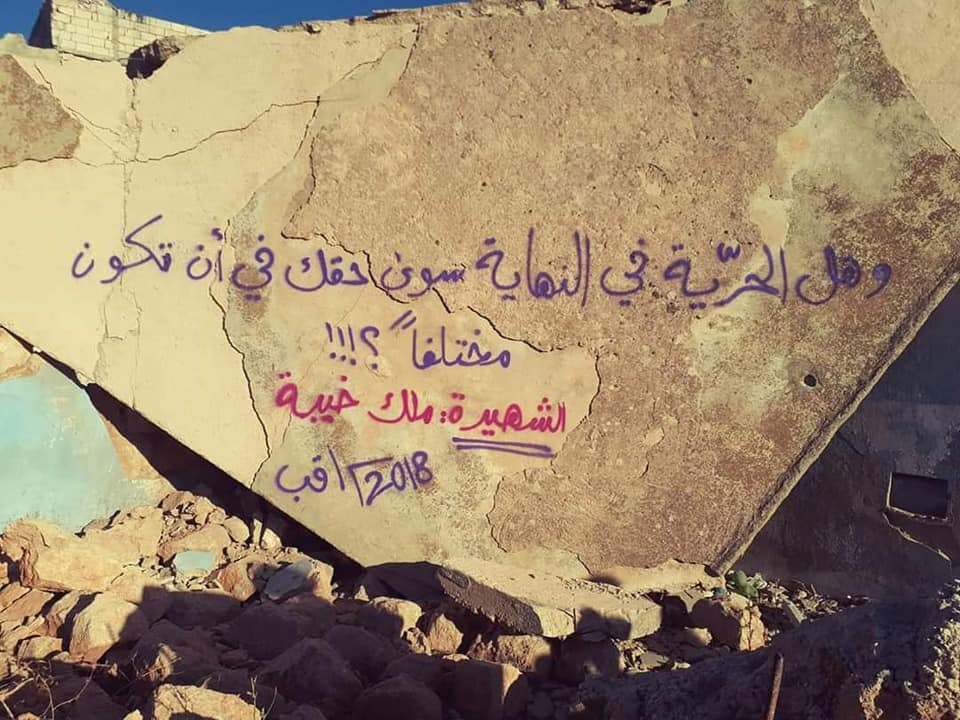 وهل الحرّية في النهاية سوى حقك في أن تكون
مختلفاً ؟!!!
الشهيدة: ملك خيبة
2018/اقب